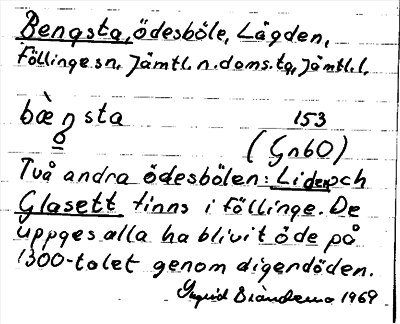 Bengsta, ödesböle, Lägden,
Föllinge sn, Jämtl. n. doms. tg, Jämtl. l.
bæ̀ŋsta
153
(GnbO)
Två andra ödesbölen: Liden och
Glasett finns i Föllinge. De
uppges alla ha blivit öde på
1300-talet genom digerdöden.
Ingrid 1969